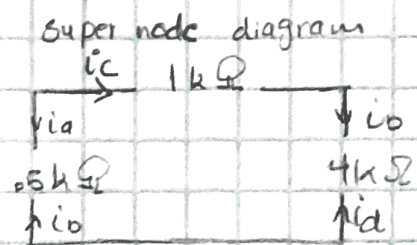 super node diagram
ic 1kΩ
ia ib
.5kΩ 4kΩ
ib id